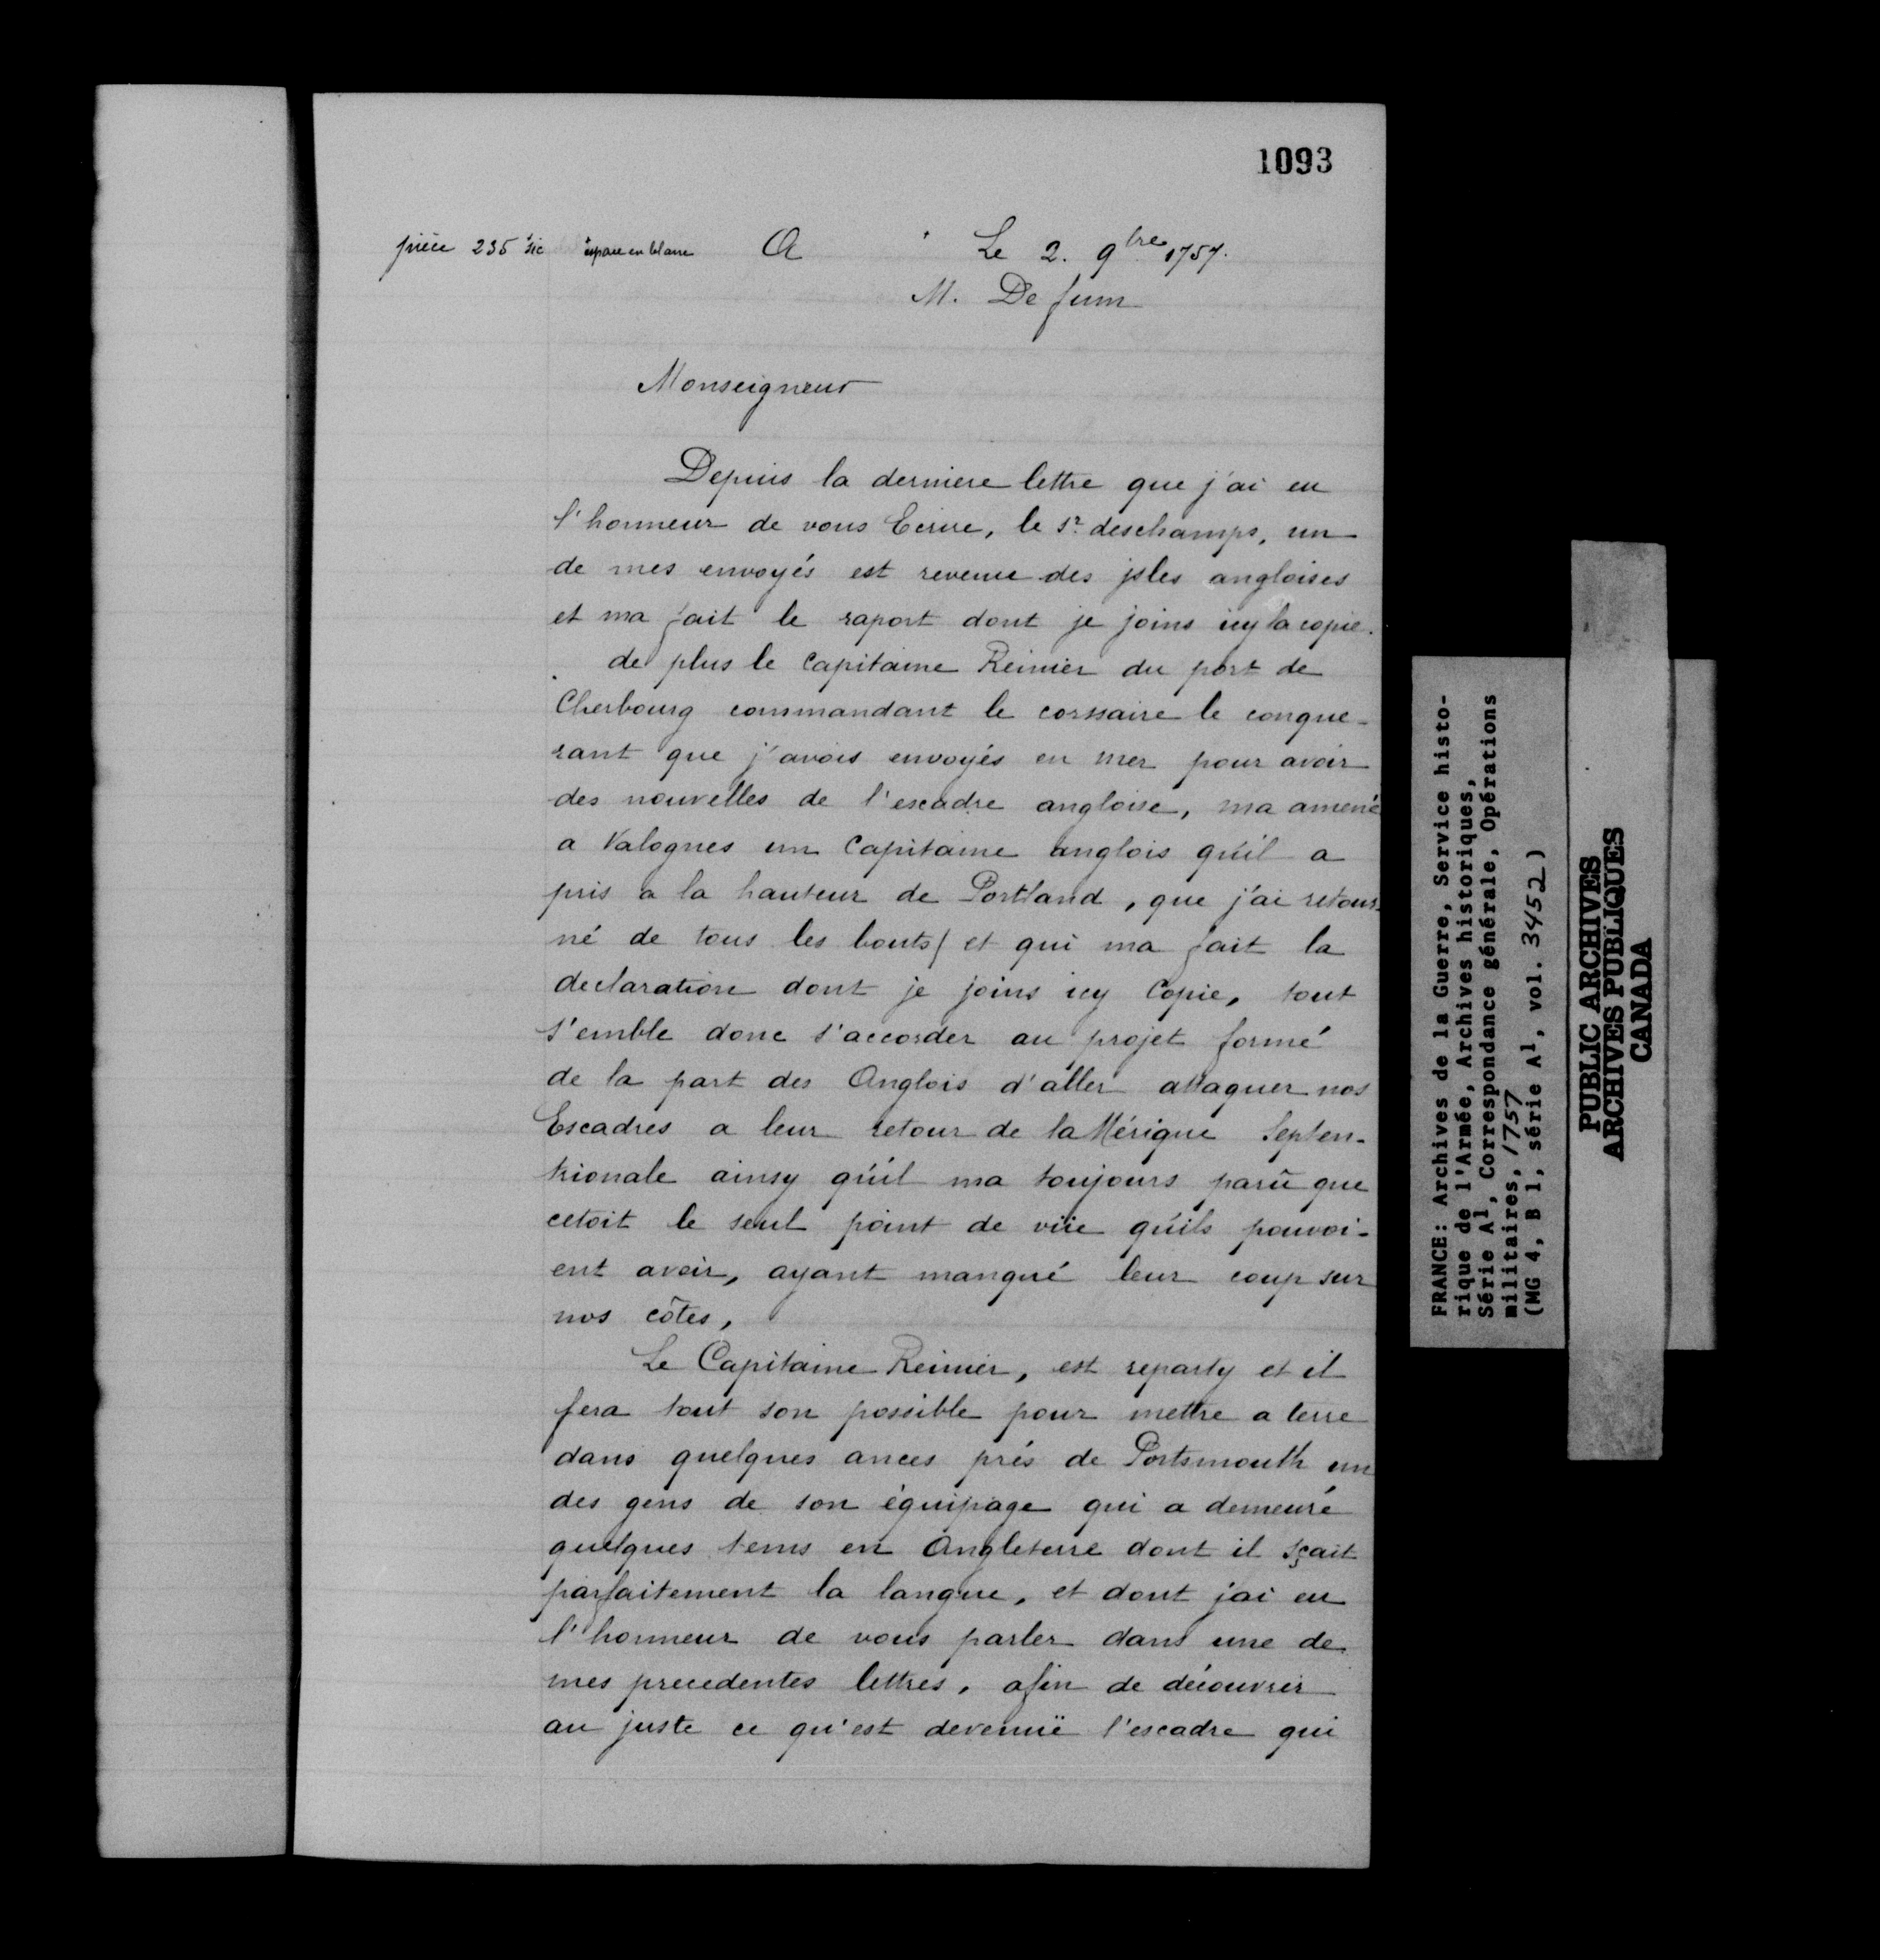 1093
pièce 235 sic * espace en blanc A * Le 2. 9bre 1757.
M. De Jum
Monseigneur
Depuis la derniere lettre que j'ai eu
l'honneur de vous Ecrire, le Sr. deschamps, un
de mes envoyés est revenue des jsles angloises
et ma fait le raport dont je joins icy la copie.
de plus le Capitaine Reinier du port de
Cherbourg commandant le corssaire le conque-
rant que j'avois envoyés en mer pour avoir
des nouvelles de l'escadre angloise, ma amené
a Valognes un Capitaine anglois qu'il a
pris a la hauteur de Portland, que j'ai retour-
né de tous les bouts/ et qui ma fait la
declaration dont je joins icy Copie, tout
s'emble donc s'accorder au projet formé
de la part des Anglois d'aller attaquer nos
Escadres a leur retour de la Mérique Septen-
trionale ainsy qu'il ma toujours parû que
cetoit le seul point de vüe qu'ils pouvoi-
ent avoir, ayant manqué leur coup sur
nos côtes,
Le Capitaine Reinier, est reparty et il
fera tout son possible pour mettre a terre
dans quelques ances prés de Portsmouth un
des gens de son équipage qui a demeuré
quelques tems en Angleterre dont il sçait
parfaitement la langue, et dont j'ai eu
l'honneur de vous parler dans une de
mes precedentes lettres, afin de découvrir
au juste ce qu'est devenuë l'escadre qui
FRANCE: Archives de la Guerre, Service histo-
rique de l'Armée, Archives historiques,
Série A1, Correspondance générale, Opérations
militaires, 1757
(MG 4, B 1, série A1, vol. 3452)
PUBLIC ARCHIVES
ARCHIVES PUBLIQUES
CANADA